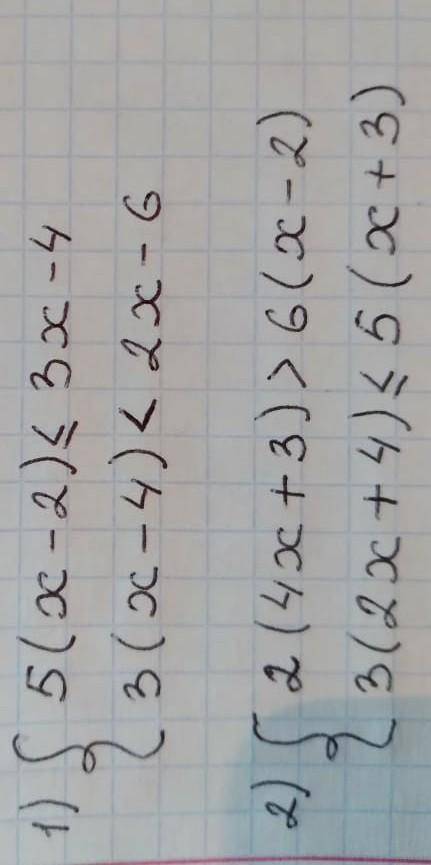 1) { 5(x-2) ≤ 3x-4
3(x-4) < 2x-6
2) { 2(4x+3) > 6(x-2)
3(2x+4) ≤ 5(x+3)